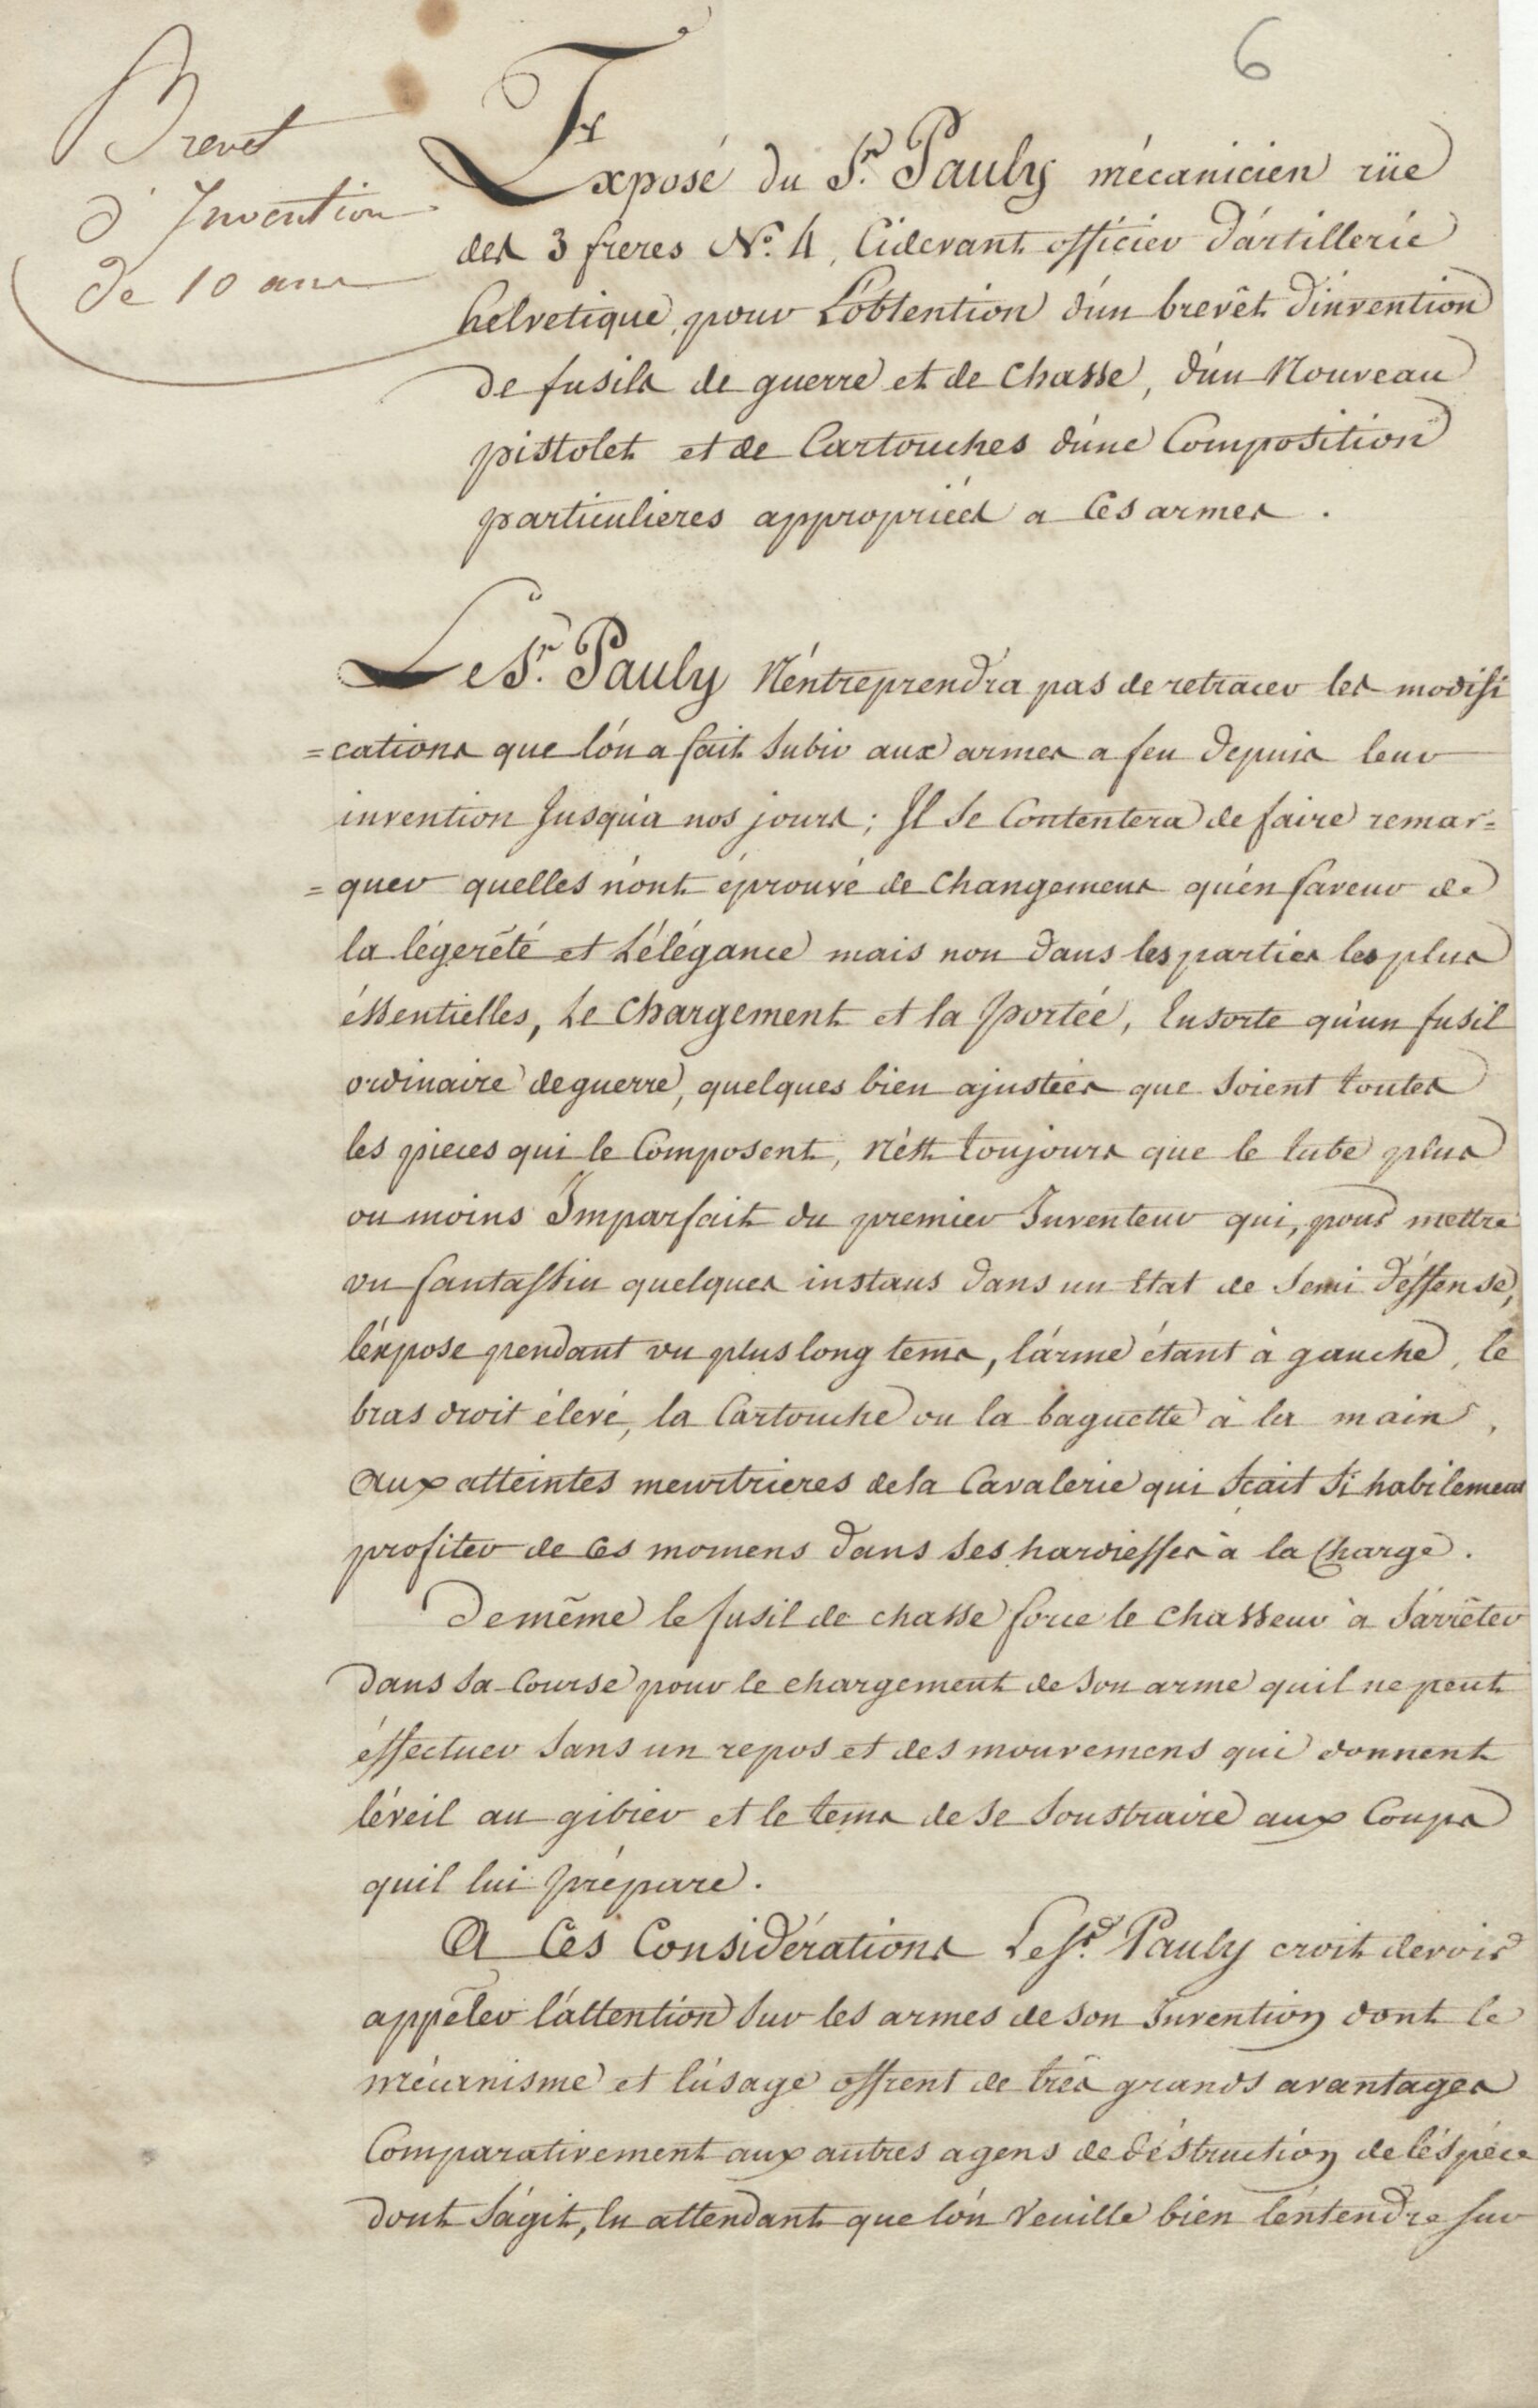 6
Brevet
d'Invention
de 10 ans
Exposé du Sr. Pauly mécanicien rüe
des 3 freres No. 4, Cidevant officier d'artillerie
helvetique, pour L'obtention d'un brevêt d'invention
de fusils de guerre et de Chasse, d'un Nouveau
pistolet et de Cartouches d'une Composition
particulieres appropriées a Ces armes.
Le Sr. Pauly N'entreprendra pas de retracer les modifi
=cations que l'on a fait Subir aux armes a feu depuis leur
invention Jusqu'a nos jours; Il Se Contentera de faire remar=
=quer quelles n'ont éprouvé de Changemens qu'en faveur de
la légerêté et L'élégance mais non dans les parties les plus
éssentielles, Le Chargement et la portée, Ensorte qu'un fusil
ordinaire de guerre, quelques bien ajustées que Soient toutes
les pieces qui le Composent, N'est toujours que le tube plus
ou moins Imparfait du premier Inventeur qui, pour mettre
un fantassin quelques instans dans un Etat de Semi déffense,
l'éxpose pendant un plus long tems, l'arme étant à gauche, le
bras droit élevé, la Cartouche ou la baguette à la main,
aux atteintes meurtrieres de la Cavalerie qui Scait Si habilement
profiter de Ces momens dans Ses hardiesses à la Charge.
De même le fusil de chasse force le Chasseur à S'arrêter
dans Sa Course pour le chargement de Son arme quil ne peut
éffectuer Sans un repos et des mouvemens qui donnent
l'éveil au gibier et le tems de Se Soustraire aux Coups
quil lui prépare.
A Ces Considérations Le Sr. Pauly croit devoir
appêler l'attention Sur les armes de Son Invention dont le
mécanisme et l'usage offrent de très grands avantages
Comparativement aux autres agens de déstruction de l'éspéce
dont S'agit, En attendant que l'on Veuille bien l'entendre Sur